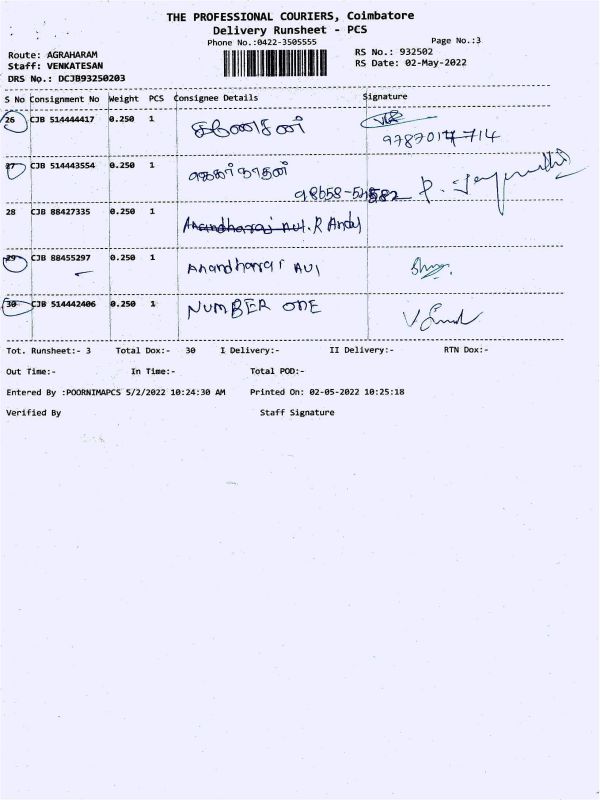 THE PROFESSIONAL COURIERS, Coimbatore
Delivery Runsheet - PCS
Phone No.:0422-3505555
Page No.:3
Route: AGRAHARAM
RS No.: 932502
Staff: VENKATESAN
RS Date: 02-May-2022
DRS No.: DCJB93250203
S No Consignment No Weight PCS Consignee Details Signature
26 CJB 514444417 0.250 1
9787017714
27 CJB 514443554 0.250 1
28 CJB 88427335 0.250 1 Anandharaj Avl. R
29 CJB 88455297 0.250 1 Anandharaj Avl
30 CJB 514442406 0.250 1 NUMBER ONE
Tot. Runsheet:- 3 Total Dox:- 30 I Delivery:- II Delivery:- RTN Dox:-
Out Time:- In Time:- Total POD:-
Entered By :POORNIMAPCS 5/2/2022 10:24:30 AM Printed On: 02-05-2022 10:25:18
Verified By Staff Signature